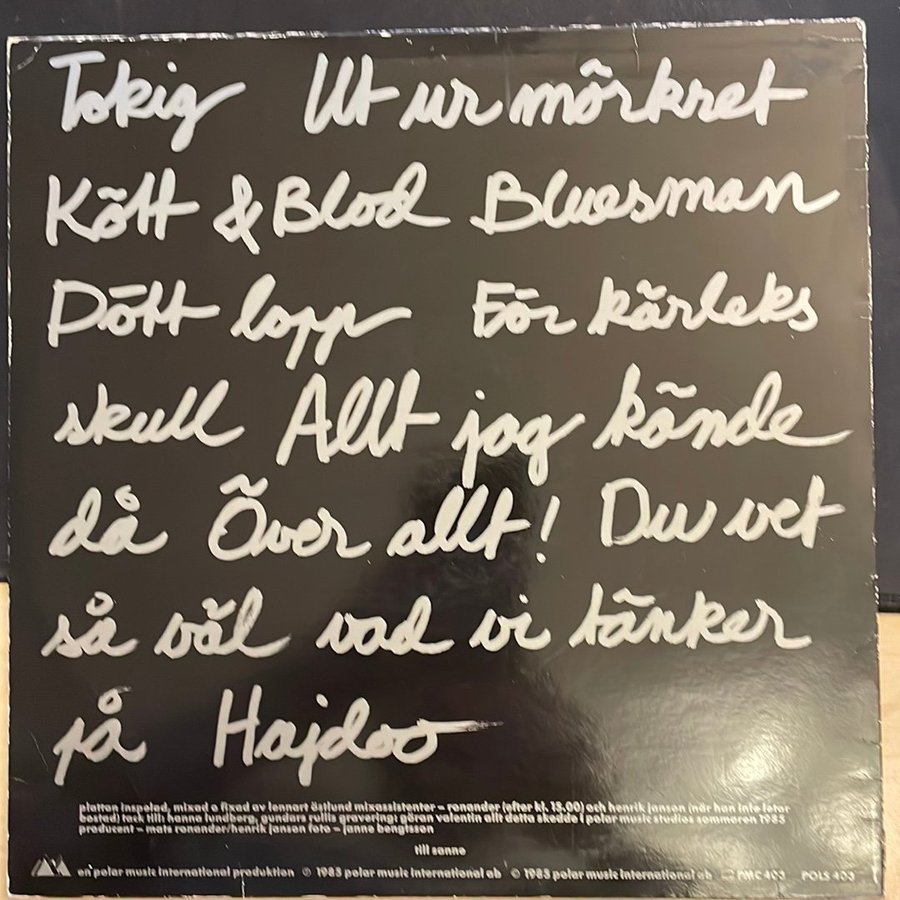 Tokig Ut ur mörkret
Kött & Blod Bluesman
Dött lopp För kärleks
skull Allt jag kände
då Över allt! Du vet
så väl vad vi tänker
på Hajdoo
plattan inspelad, mixad o fixad av lennart östlund mixassistenter – ronander (efter kl. 15.00) och henrik janson (när han inte letar
bostad) tack till: hanna lundberg, gunders rullis gravering: göran valentin allt detta skedde i polar music studios sommaren 1983
producent – mats ronander/henrik janson foto – janne bengtsson
till sanne
en polar music international produktion ℗ 1983 polar music international ab © 1983 polar music international ab PMC 403 POLS 403